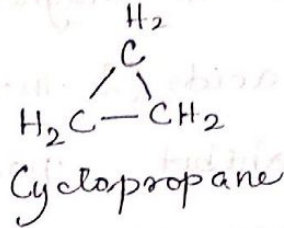 H₂
C
H₂C — CH₂
Cyclopropane